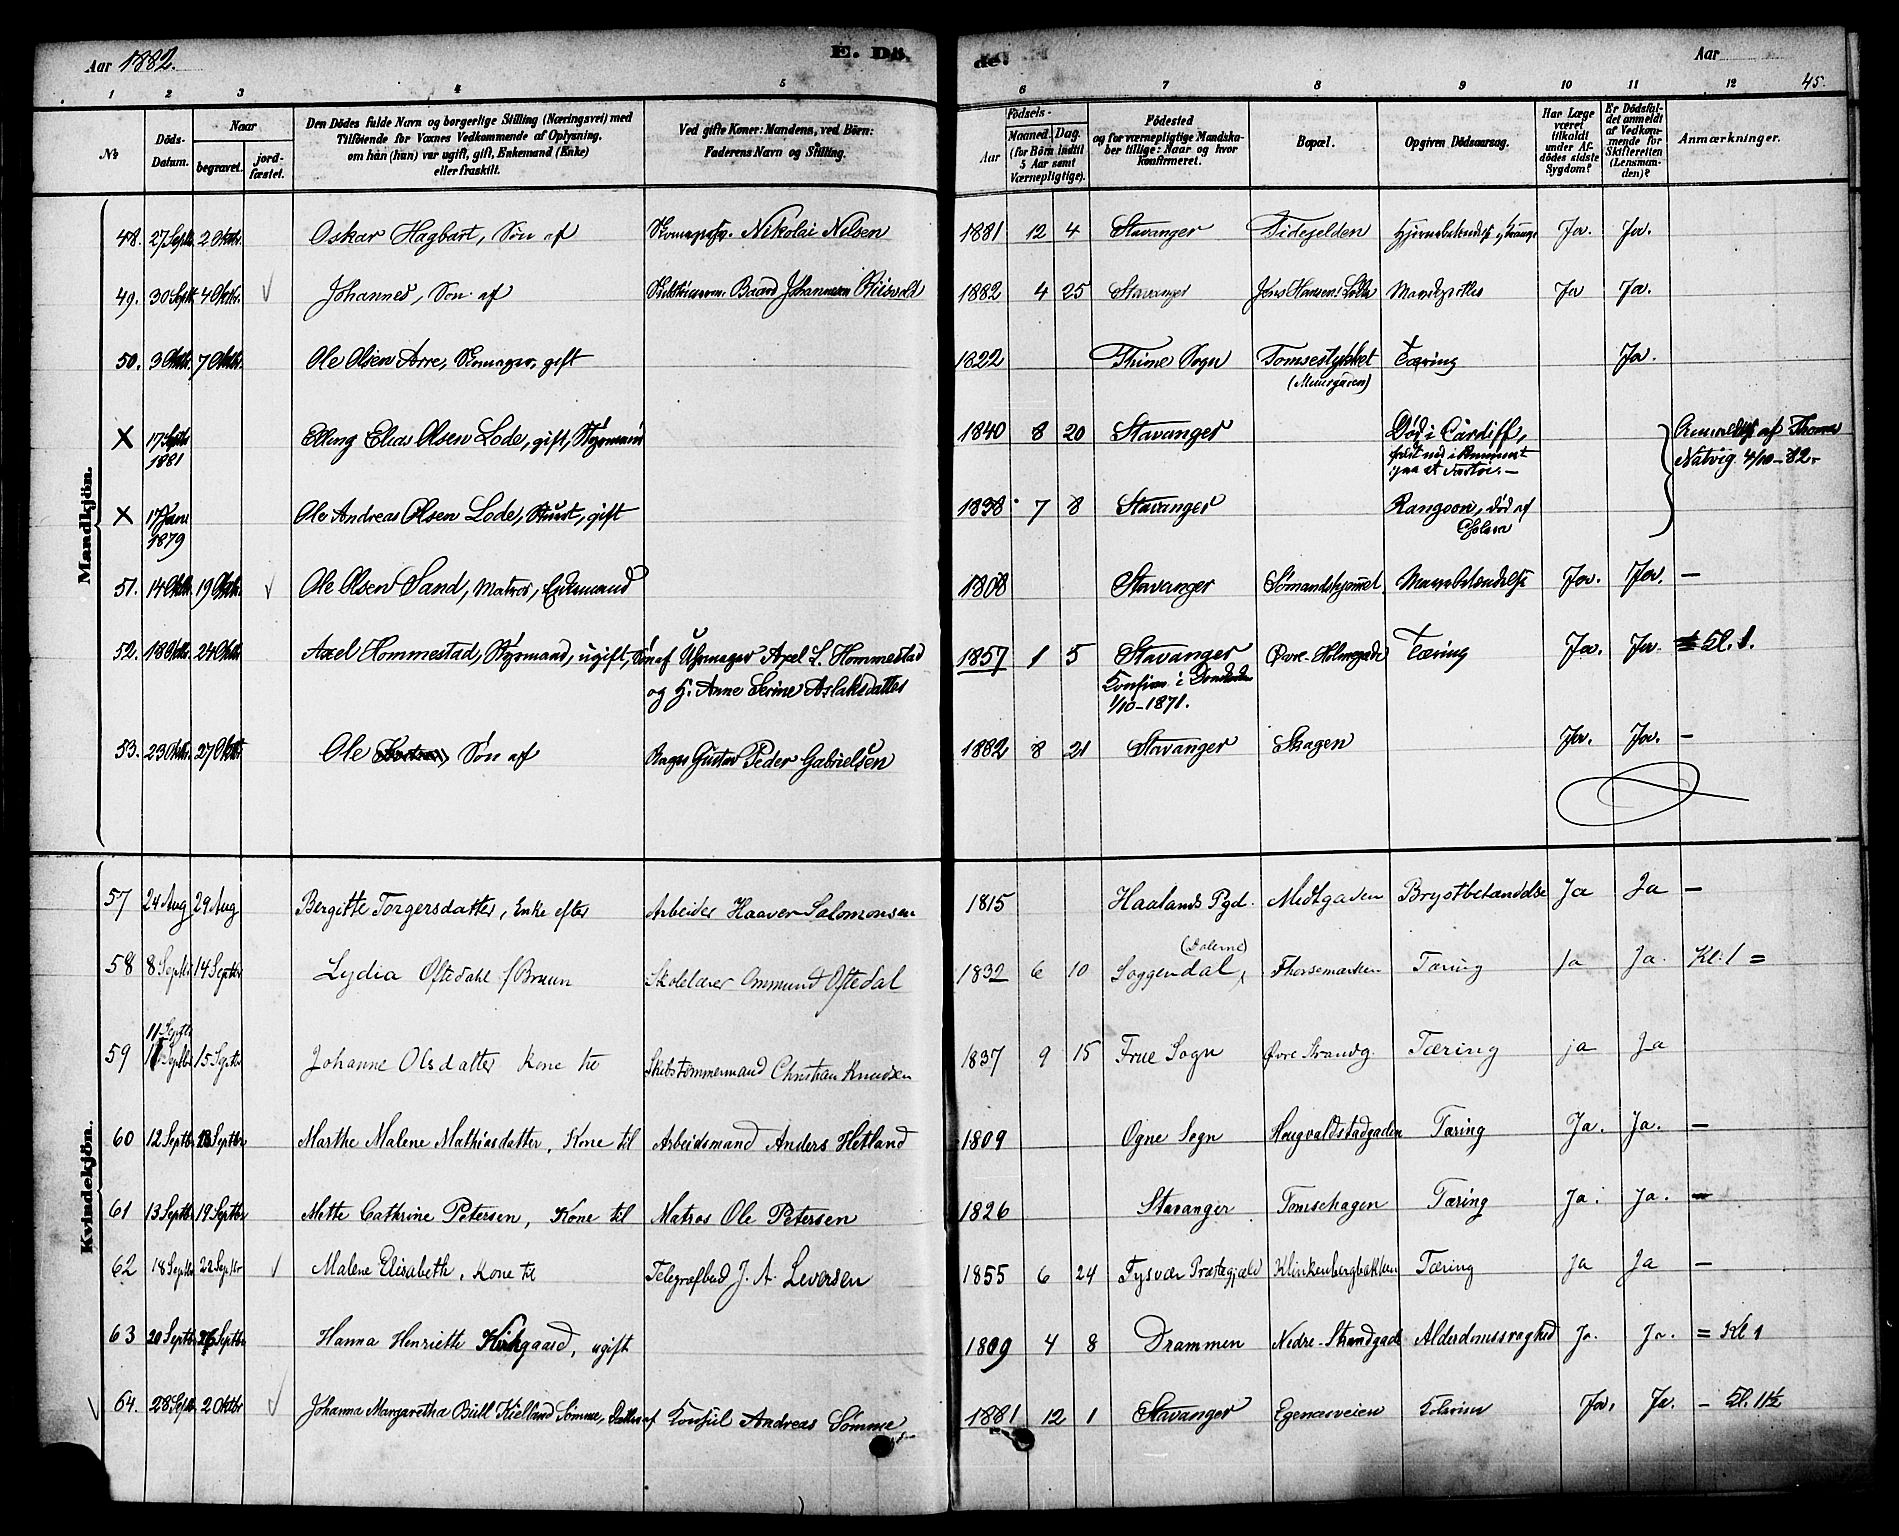 Aar 1882.
E. Dö-
de.
Aar
45.
1 2 3 4 5 6 7 8 9 10 11 12
No
Döds-Datum.
Naar
begravet.
jord-fæstet.
Den Dödes fulde Navn og borgerlige Stilling (Næringsvei) med
Tilföiende for Voxnes Vedkommende af Oplysning,
om hán (hun) var ugift, gift, Enkemand (Enke)
eller fraskilt.
Ved gifte Koner: Mandens, ved Börn:
Faderens Navn og Stilling.
Födsels-
Aar
Maaned. Dag.
(for Börn indtil
5 Aar samt
Værnepligtige).
Födested
og for værnepligtige Mandska-
ber tillige: Naar og hvor
Konfirmeret.
Bopæl.
Opgiven Dödsaarsag.
Har Læge
været
tilkaldt
under Af-
dödes sidste
Sygdom?
Er Dödsfal-
det anmeldt
af Vedkom-
mende for
Skifteretten
(Lensman-
den)?
Anmærkninger.
Mandkjön.
48. 27 Septb. 2 Oktbr. Oskar Hagbart, Søn af Nikolai Nilsen 1881 12 4 Stavanger Ja. Ja.
49. 30 Septb. 4 Oktbr. Johannes, Søn af Baard Johannesen 1882 4 25 Stavanger Ja Ja.
50. 3 Oktbr. 7 Oktbr. Ole Olsen Arre, Skomager, gift 1822 Thime Sogn Tomsestykket Tæring Ja.
(Muurgaren)
X 17 Septb 1881 Elling Elias Olsen Lode, gift, Styrmand 1840 8 20 Stavanger Død i Cardiff, Anmeldt af Thomas
Natvig 4/10-82.
X 17 Jan 1879 Ole Andreas Olsen Lode, gift 1838 7 8 Stavanger Rangoon, død af
Cholera
51. 14 Oktbr. 19 Oktbr. Ole Olsen Sand, Matros, Enkemand 1808 Stavanger Sømandshjemmet Mavebetændelse Ja. Ja. —
52. 18 Oktbr. 24 Oktbr. Axel Hommestad, Styrmand, ugift, Søn af Uhrmager Axel L. Hommestad 1857 1 5 Stavanger Øvre Holmegade Tæring Ja. Ja. Kl. 1.
og H. Anne Serine Aslaksdatter
1/10-1871.
53. 23 Oktbr. 27 Oktbr Ole Søn af Bager Gustav Peder Gabrielsen 1882 8 21 Stavanger Skagen Ja. Ja. —
Kvindekjön.
57 24 Aug 29 Aug Bergitte Torgersdatter, Enke efter Arbeider Haaver Salomonsen 1815 Haalands Pgd. Midtgaden Brystbetændelse Ja Ja —
58 8 Septbr 14 Septbr Lydia Oftedahl f Bruun Skolelærer Ommund Oftedal 1832 6 10 Soggendal, (Dalerne) Thorsemarken Tæring Ja Ja. Kl: 1 =
59 11 Septbr 15 Septbr Johanne Olsdatter Kone til Skibstømmermand Christian Knudsen 1837 9 15 Frue Sogn Øvre Strandg. Tæring ja Ja
60 12 Septbr 18 Septbr Marthe Malene Mathiasdatter, Kone til Arbeidsmand Anders Hetland 1809 Ogne Sogn Hougvaldstadgaden Tæring Ja. Ja. —
61 13 Septbr 19 Septbr Mette Cathrine Petersen, Kone til Matros Ole Petersen 1826 Stavanger Tomsehagen Tæring Ja. Ja. —
62 18 Septbr 22 Septbr Malene Elisabeth, Kone til Telegrafbud J. A. Leversen 1855 6 24 Tysvær Præstegjæld Klinkenbergbakken Tæring Ja Ja —
63 20 Septbr 26 Septbr Hanna Henriette Kirkgaard, ugift 1809 4 8 Drammen Nedre Strandgade Alderdomssvaghed Ja. Ja. = Kl 1
64. 28 Septb. 2 Oktbr Johanna Margaretha Bull Kielland Sømme, Datter af Konsul Andreas Sømme 1881 12 1 Stavanger Egenesveien Kolerine Ja. Ja. — Kl. 11½